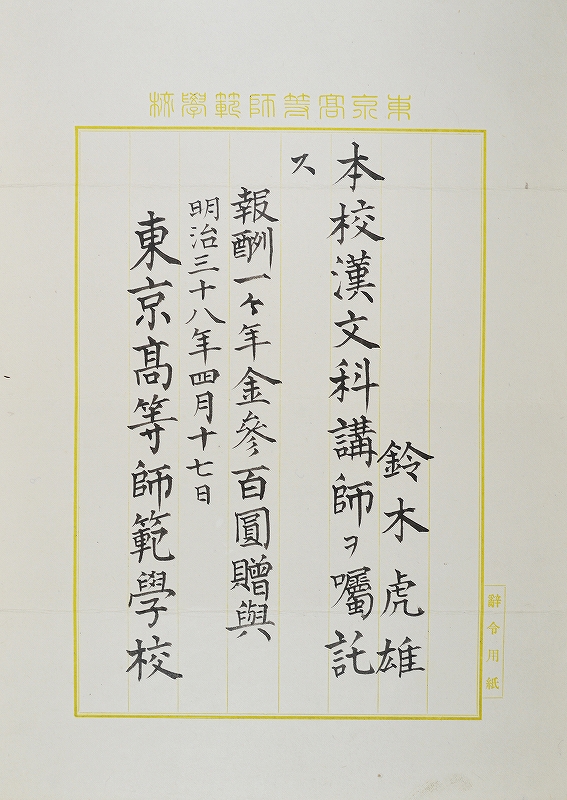 東京高等師範學校
鈴木虎雄
本校漢文科講師ヲ囑託
ス
報酬一ケ年金參百圓贈與
明治三十八年四月十七日
東京髙等師範學校
辭令用紙